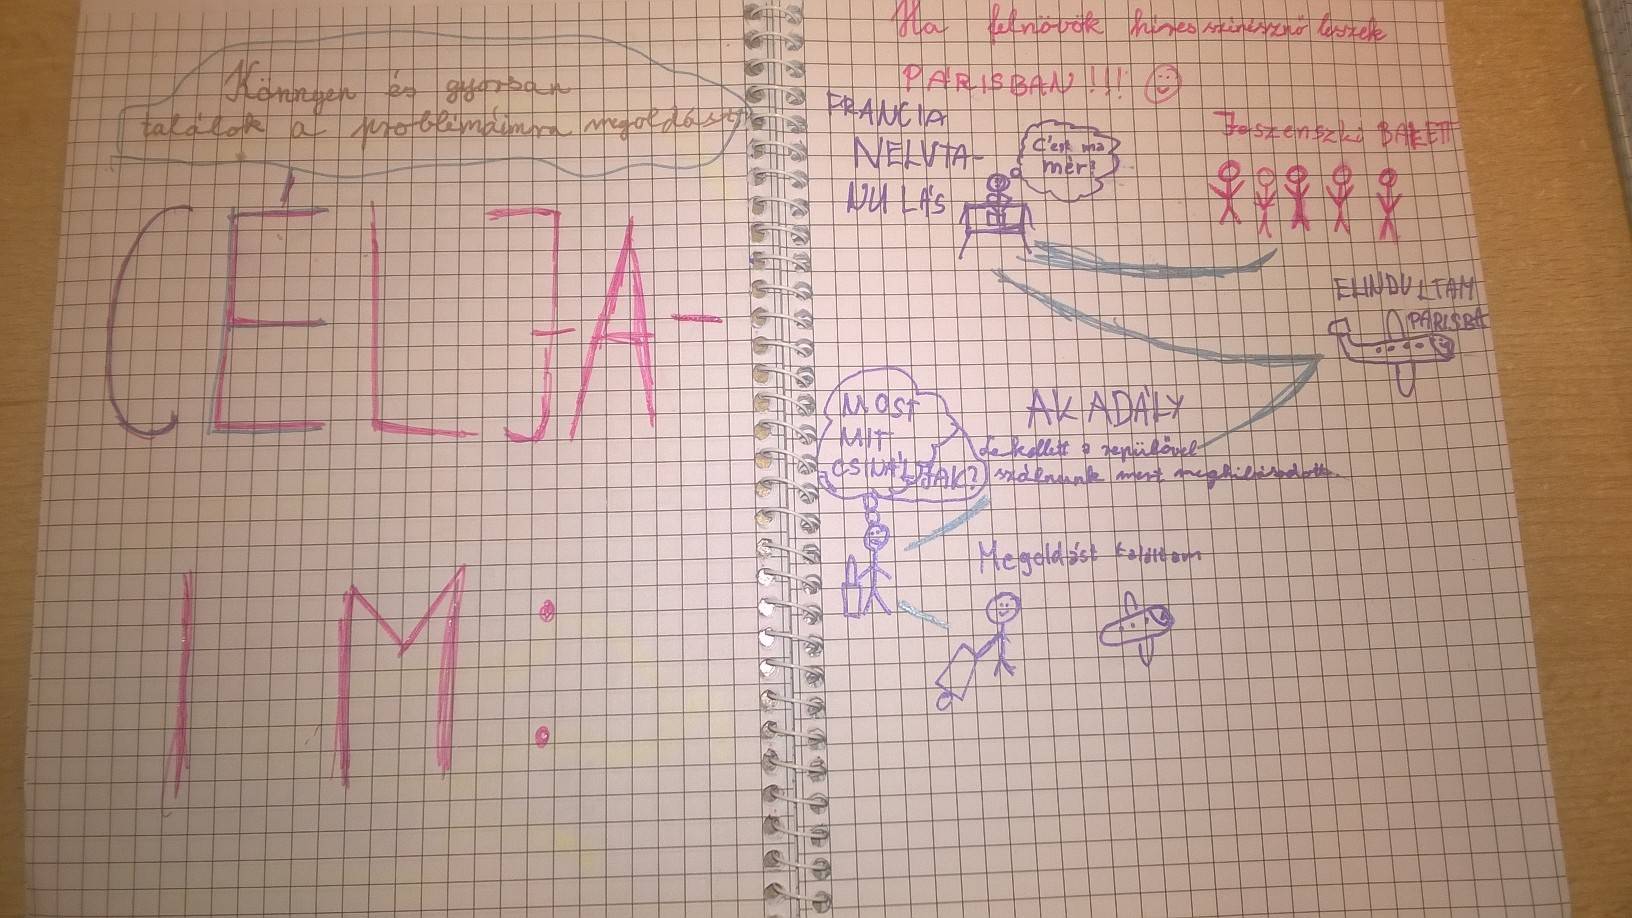 Könnyen és gyorsan
találok a problémáimra megoldást
CÉLJA-
IM:
Ha felnövök híres színésznő leszek
PÁRISBAN!!!
FRANCIA
NELVTA-
NULÁS
C'est ma
mér?
BALETT
ELINDULTAM
PÁRISBA
MOST
MIT
CSINÁLJAK?
AKADÁLY
Le kellett a repülővel
szálnunk mert meghibásodott.
Megoldást találtam